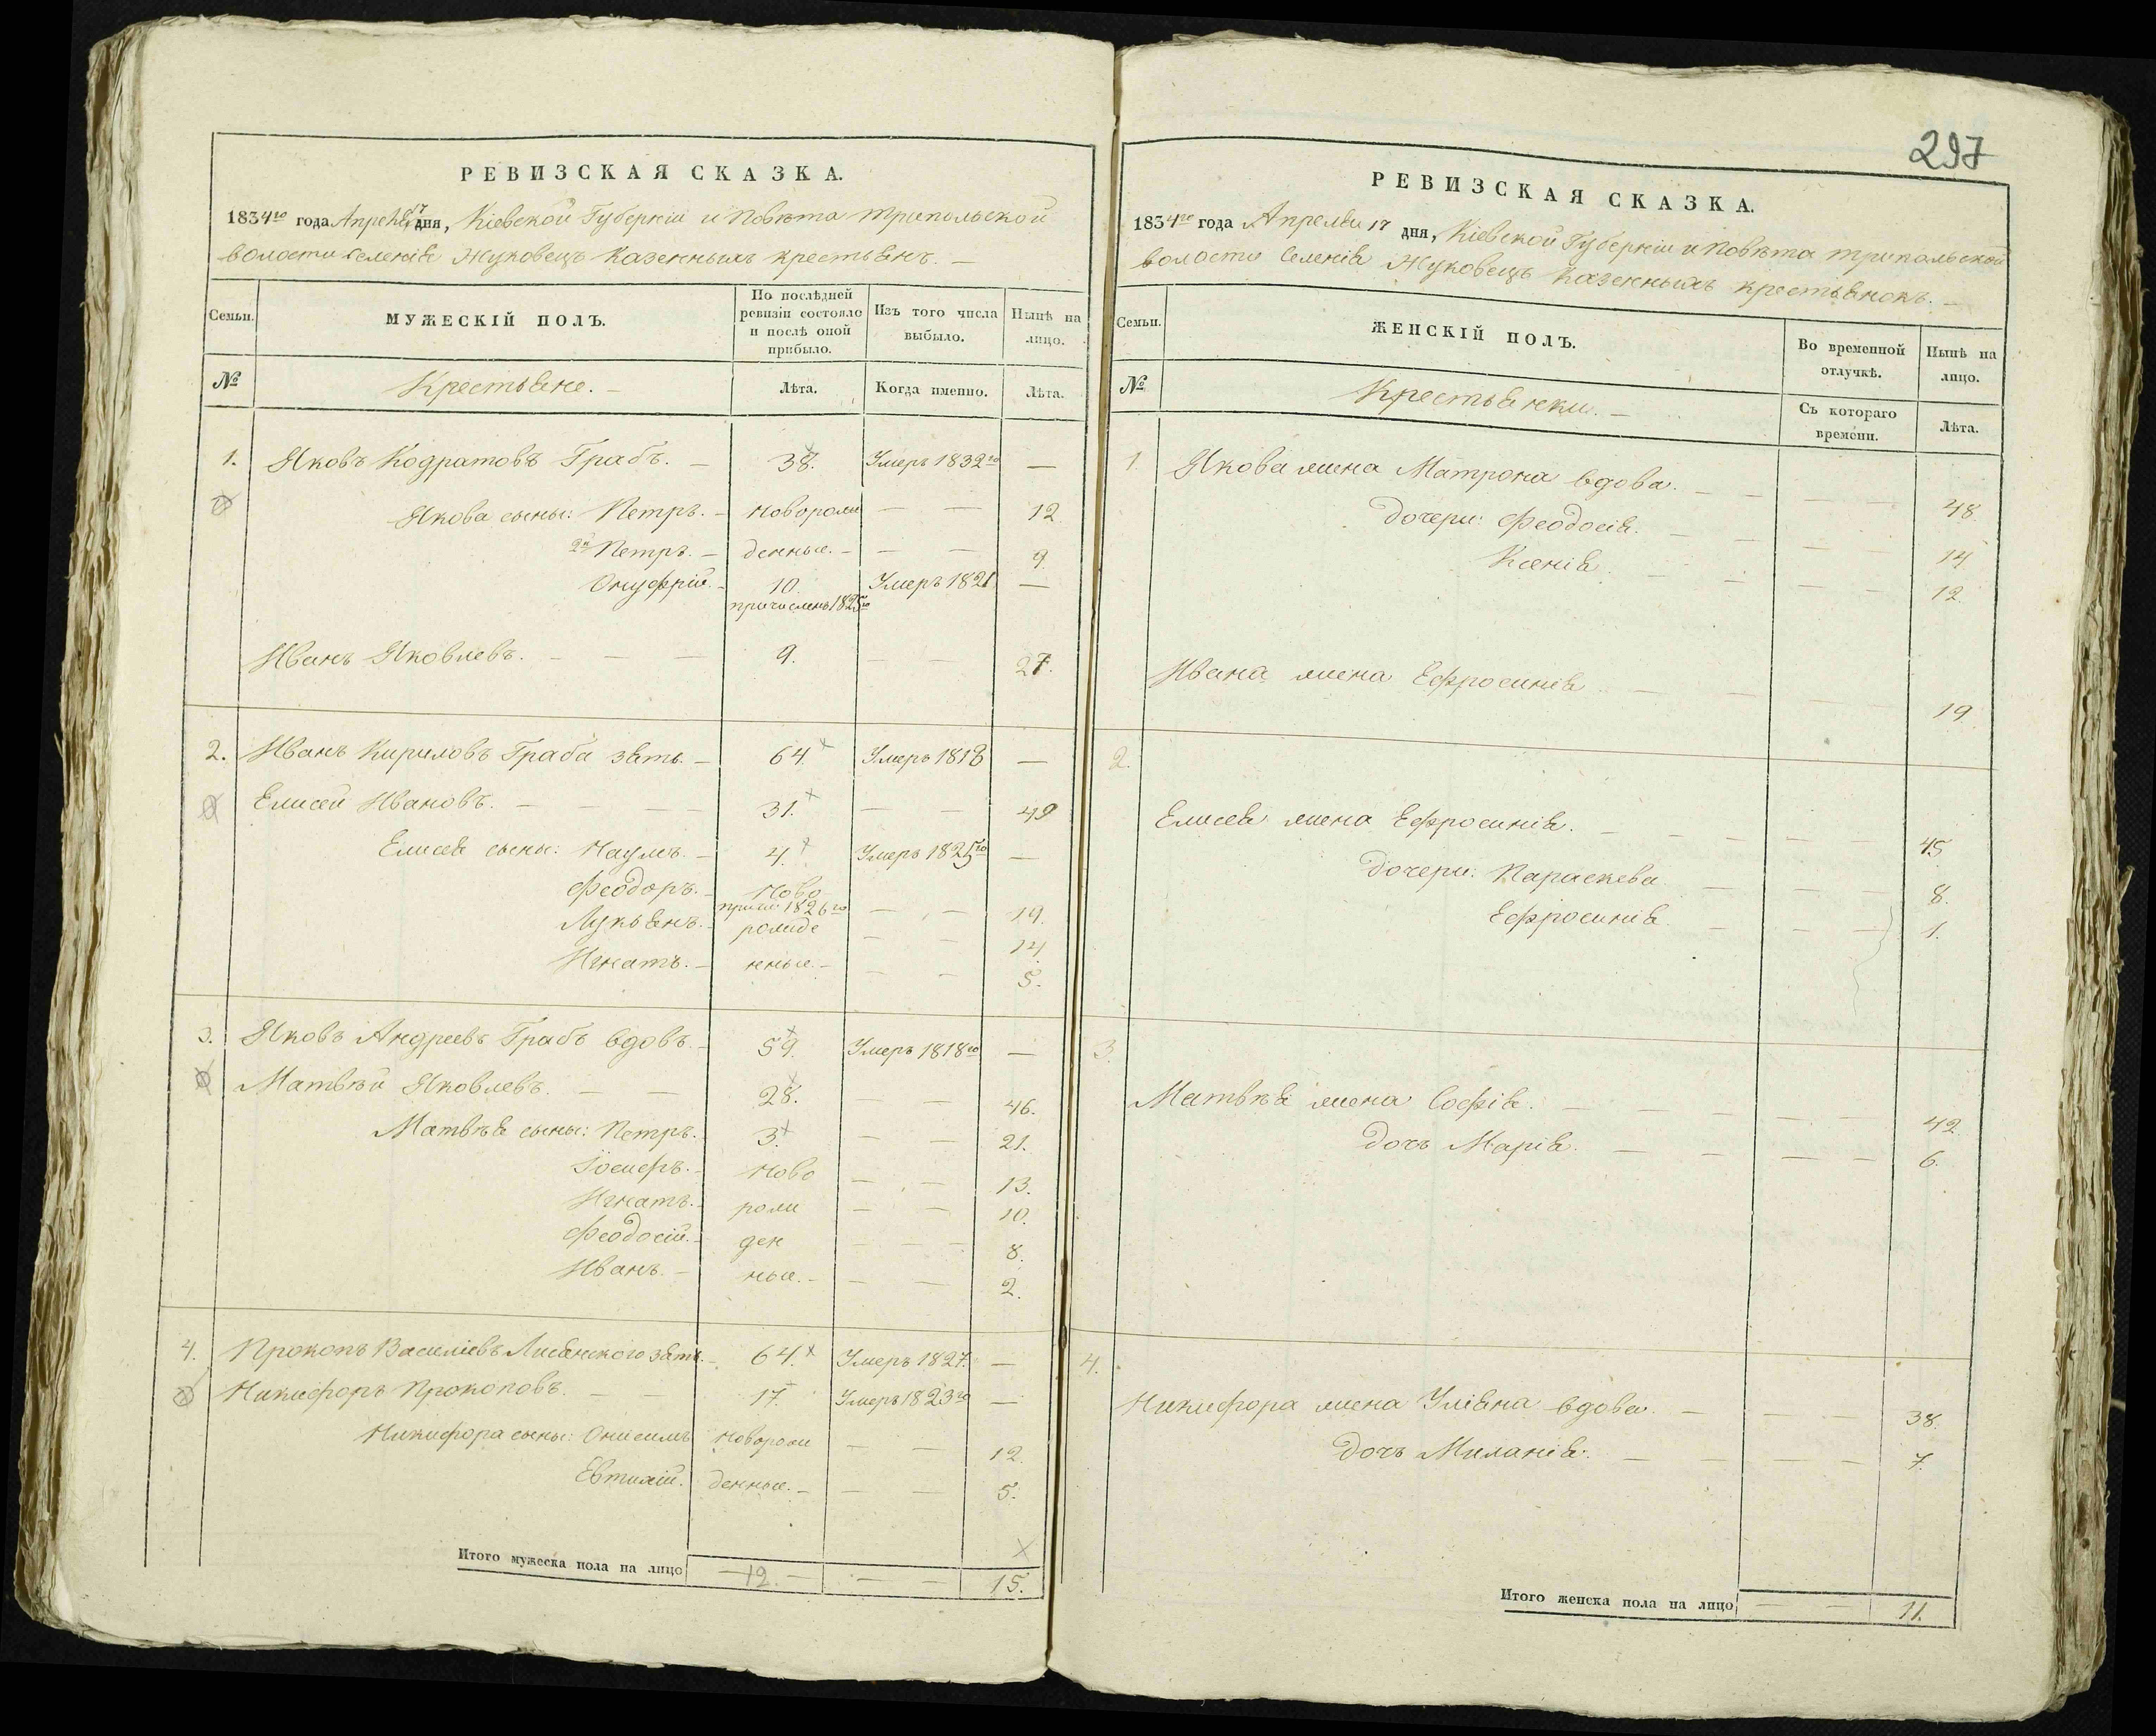 РЕВИЗСКАЯ СКАЗКА.
1834го года Апреля 17 дня, Кіевской Губерніи и Повѣта Трипольской
волости селенія Жуковецъ Казенныхъ крестьянъ. —
Семьи.
МУЖЕСКІЙ ПОЛЪ.
По послѣдней ревизіи состояло и послѣ оной прибыло.
Изъ того числа выбыло.
Нынѣ на лицо.
№
Крестьяне. —
Лѣта.
Когда именно.
Лѣта.
1. Яковъ Кодратовъ Грабъ. — 38. Умеръ 1832го —
Якова сыны: Петръ. — Новорож — — 12
2й Петръ. — денные. — — — 9.
Онуфрій. — 10. Умеръ 1821 —
причисленъ 1825го
Иванъ Яковлевъ. — — — 9. — — 27.
2. Иванъ Кириловъ Граба зять. — 64. Умеръ 1818 —
Елисей Ивановъ. — — — — 31. — — 49
Елисея сыны: Наумъ. — 4. Умеръ 1825го —
Феодоръ. — Ново — — 19.
причи 1826го
Лукьянъ. — рожде — — 14.
Игнатъ. — нные. — — — 5.
3. Яковъ Андреевъ Грабъ вдовъ. — 59. Умеръ 1818го —
Матвѣй Яковлевъ. — — 28. — — 46.
Матвѣя сыны: Петръ. 3. — — 21.
Іосифъ. — Ново — — 13.
Игнатъ. — рож — — 10.
Феодосій. — ден — — — 8.
Иванъ. — ные. — — — 2.
4. Прокопъ Василіевъ Лисянского зять. — 64. Умеръ 1827. —
Никифоръ Прокоповъ. — — 17. Умеръ 1823го —
Никифора сыны: Онисимъ Новорож — — 12.
Евтихій. денные. — — — 5.
Итого мужеска пола на лицо — 12. — — — 15.
297
РЕВИЗСКАЯ СКАЗКА.
1834го года Апреля 17 дня, Кіевской Губерніи и Повѣта Трипольской
волости Селенія Жуковецъ Казенныхъ крестьянокъ. —
Семьи.
ЖЕНСКІЙ ПОЛЪ.
Во временной отлучкѣ.
Нынѣ на лицо.
№
Крестьянки. —
Съ котораго времени.
Лѣта.
1. Якова жена Матрона вдова. — — — — 48.
Дочери: Феодосія. — — — — 14
Ксенія — — — — 12.
Ивана жена Ефросинія — — — — 19
2.
Елисея жена Ефросинія. — — — — 45
Дочери: Параскева — — — 8.
Ефросинія. — — — 1.
3.
Матвѣя жена Софія. — — — — — — 42
Дочь Марія. — — — — — 6.
4.
Никифора жена Уліяна вдова. — — — 38.
Дочь Миланія. — — — — 7.
Итого женска пола на лицо — — 11.